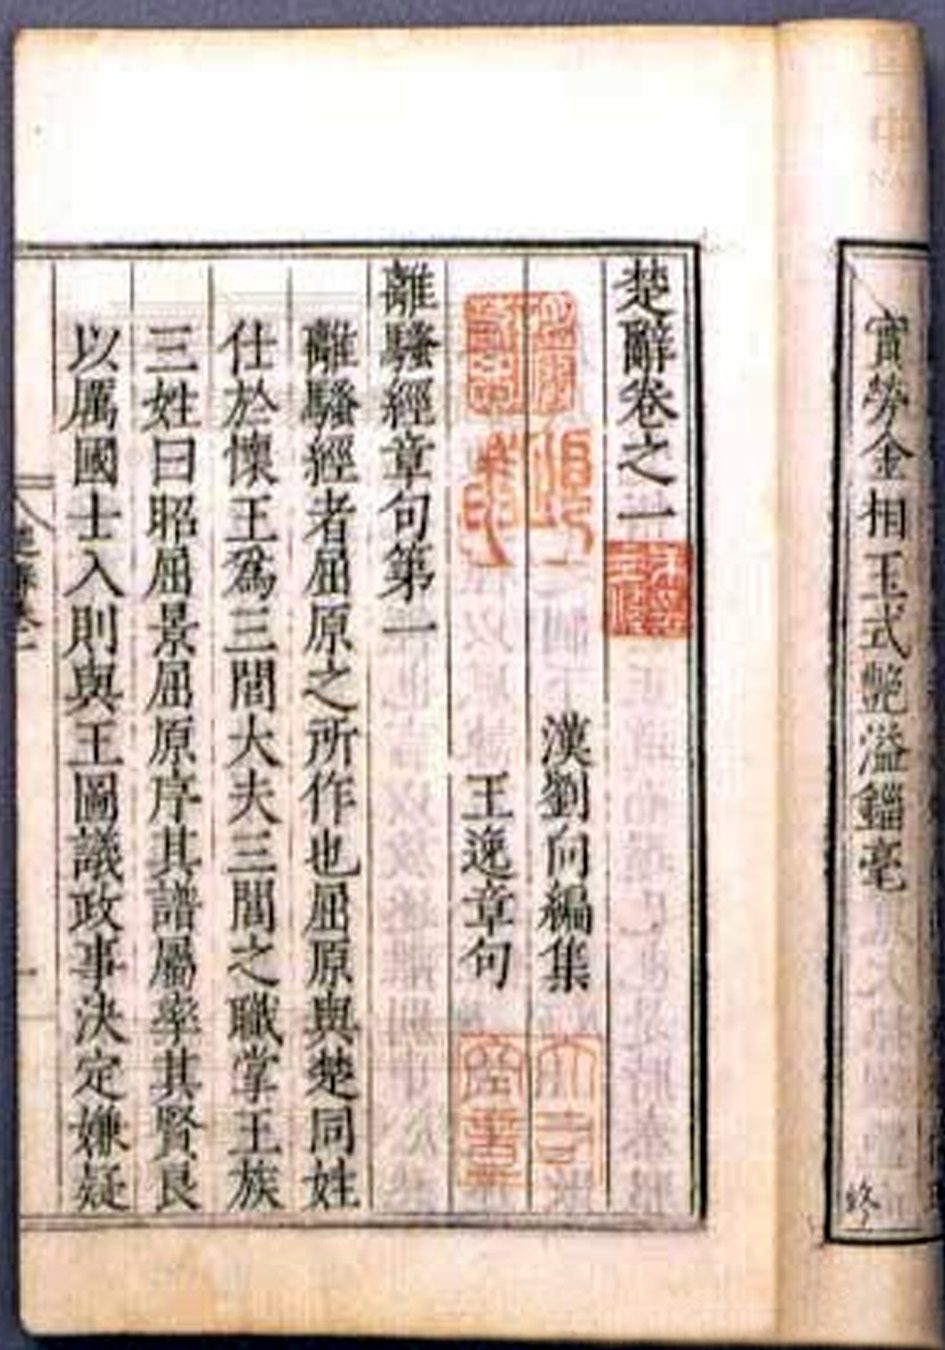 實勞金相玉式艷溢錙毫
終
楚辭卷之一
漢劉向編集
王逸章句
離騷經章句第一
離騷經者屈原之所作也屈原與楚同姓
仕於懷王爲三閭大夫三閭之職掌王族
三姓曰昭屈景屈原序其譜屬率其賢良
以厲國士入則與王圖議政事決定嫌疑